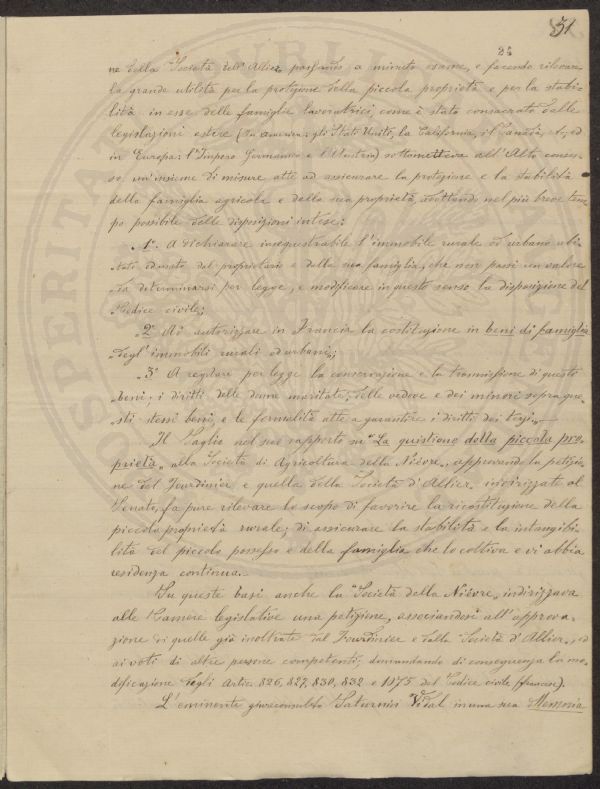 31
24
ne della Società dell'Allier passando a minuto esame, e facendo rilevare
la grande utilità per la protezione della piccola proprietà e per la stabi-
lità in esse delle famiglie lavoratrici, come è stato consacrato dalle
legislazioni estere (In America: gli Stati Uniti, la California, il Canadà, ed
in Europa: l'Impero Germanico e l'Austria) sottometteva all'Alto conses-
so, un'insieme di misure atte ad assicurare la protezione e la stabilità
della famiglia agricola e della sua proprietà, adottando nel più breve tem-
po possibile delle disposizioni intese:
„1°. A dichiarare insequestrabile l'immobile rurale od urbano abi-
„tati ed usato dal proprietario e dalla sua famiglia, che non passi un valore
„da determinarsi per legge, e modificare in questo senso la disposizione del
„Codice civile;
„2° Ad autorizzare in Francia la costituzione in beni di famiglia
„degl'immobili rurali ed urbani„;
„3° A regolare per legge la conservazione e la transmissione di questi
„beni; i diritti delle donne maritate, delle vedove e dei minori sopra que-
„sti stessi beni, e le formalità atte a garantire i diritti dei terzi„.
Il Taglie nel suo rapporto su "La quistione della piccola pro-
prietà„ alla Società di Agricoltura della Nièvre, approvando la petizio-
ne del Fourdinier e quella della Società d'Allier, indirizzate al
Senato, fa pure rilevare lo scopo di favorire la ricostituzione della
piccola proprietà rurale; di assicurare la stabilità e la intangibi-
lità del piccolo possesso e della famiglia che lo coltiva e vi abbia
residenza continua.
Su queste basi anche la "Società della Nièvre„ indirizzava
alle Camere legislative una petizione, associandosi all'approva-
zione di quelle già inoltrate dal Fourdinier e dalla Società d'Allier, ed
ai voti di altre persone competenti, dimandando di conseguenza la mo-
dificazione degli Artic. 826, 827, 830, 832 e 1175 del Codice civile (francese).
L'eminente giureconsulto Saturnin Vidal in una sua Memoria